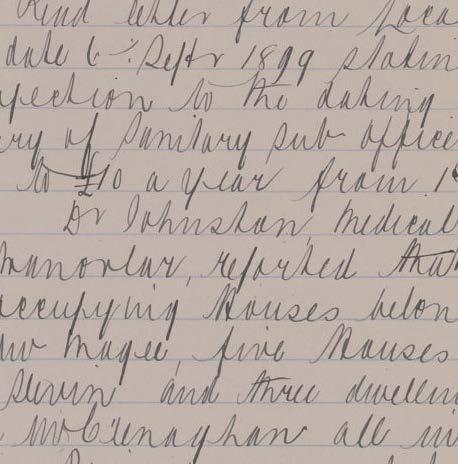 Read letter from Loca
date 6th Septr 1899 statin
ojection to the dating
ery of Sanitary sub office
to £10 a year from 1s
Dr Johnston, Medical
Manorlar, reported that
occupying Houses belon
ew Magee, five Houses
Slevin and three dwellin
McCrenaghan all in